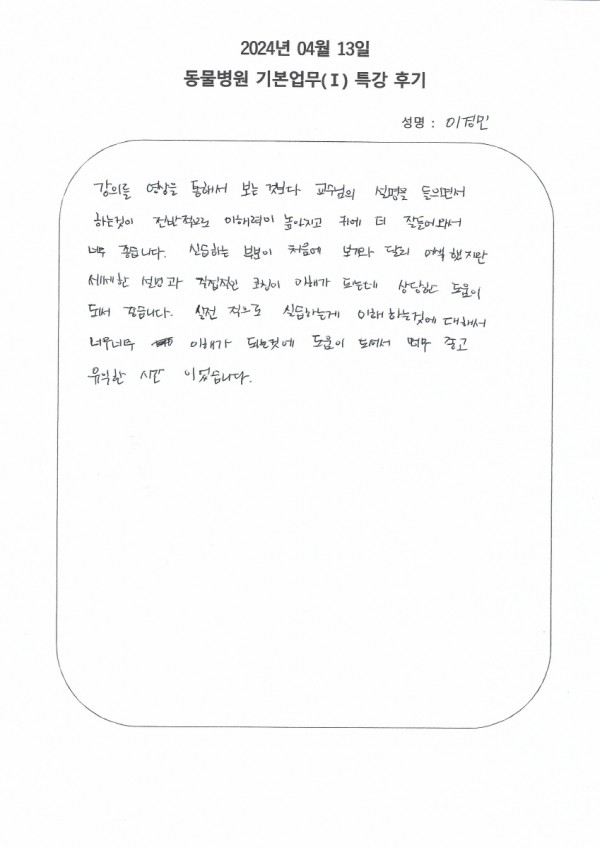 2024년 04월 13일
동물병원 기본업무(I) 특강 후기
성명 : 이경민
강의를 영상을 통해서 보는 것보다 교수님의 설명을 들으면서
하는것이 전반적으로 이해력이 높아지고 귀에 더 잘들어와서
너무 좋습니다. 실습하는 부분이 처음에 보기와 달리 어색했지만
세세한 설명과 직접적인 코칭이 이해가 되는데 상당한 도움이
되서 좋습니다. 실전 적으로 실습하는게 이해하는것에 대해서
너무너무 이해가 되는것에 도움이 되서서 너무 좋고
유익한 시간 이었습니다.